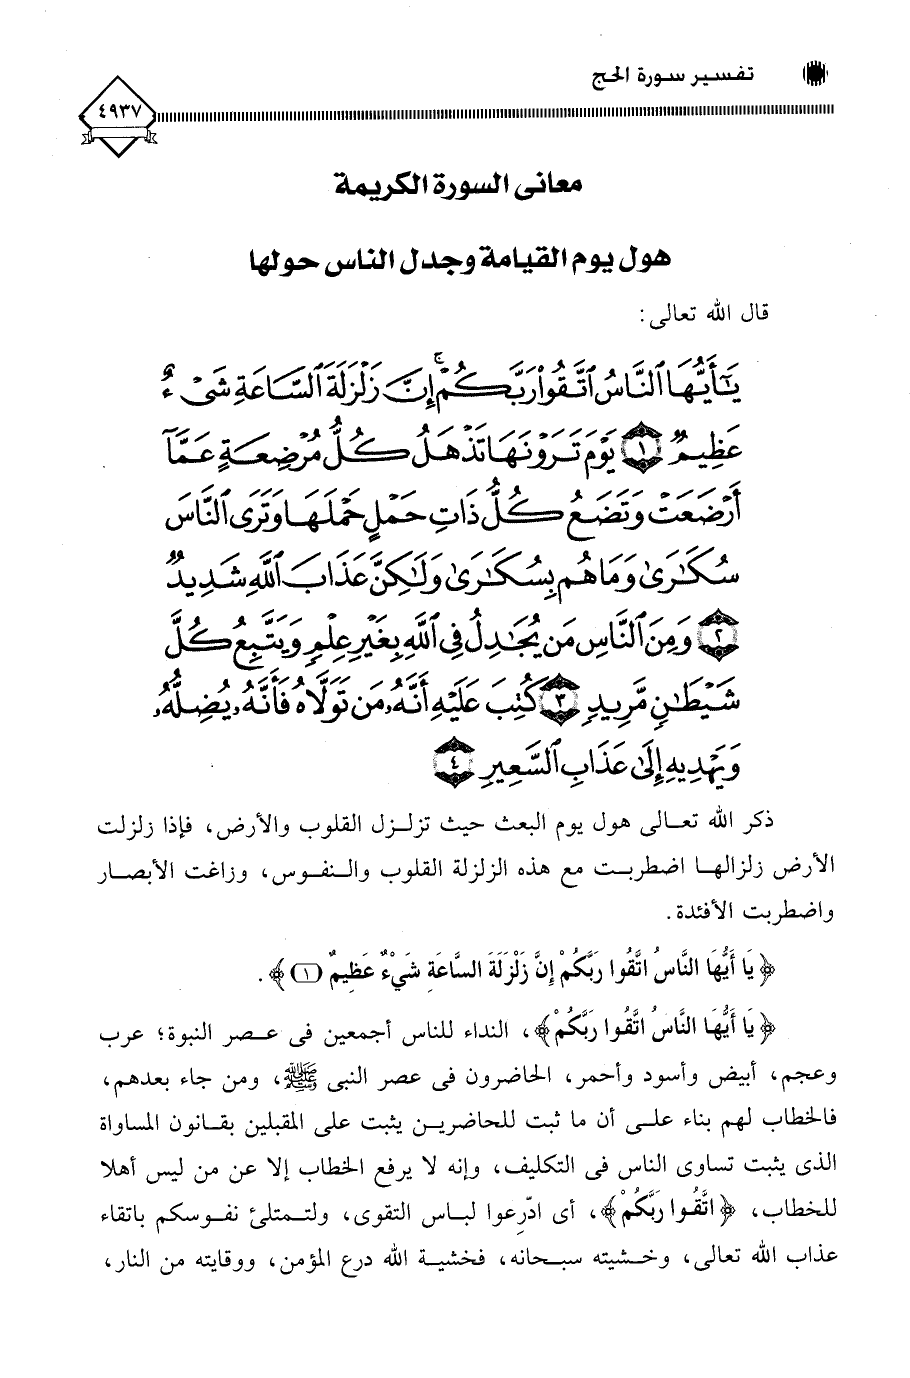 تفسير سورة الحج
٤٩٣٧
معانى السورة الكريمة
هول يوم القيامة وجدل الناس حولها
قال الله تعالى:
يَٰٓأَيُّهَا ٱلنَّاسُ ٱتَّقُوا۟ رَبَّكُمْ ۚ إِنَّ زَلْزَلَةَ ٱلسَّاعَةِ شَىْءٌ
عَظِيمٌ ١ يَوْمَ تَرَوْنَهَا تَذْهَلُ كُلُّ مُرْضِعَةٍ عَمَّآ
أَرْضَعَتْ وَتَضَعُ كُلُّ ذَاتِ حَمْلٍ حَمْلَهَا وَتَرَى ٱلنَّاسَ
سُكَٰرَىٰ وَمَا هُم بِسُكَٰرَىٰ وَلَٰكِنَّ عَذَابَ ٱللَّهِ شَدِيدٌ
٢ وَمِنَ ٱلنَّاسِ مَن يُجَٰدِلُ فِى ٱللَّهِ بِغَيْرِ عِلْمٍ وَيَتَّبِعُ كُلَّ
شَيْطَٰنٍ مَّرِيدٍ ٣ كُتِبَ عَلَيْهِ أَنَّهُۥ مَن تَوَلَّاهُ فَأَنَّهُۥ يُضِلُّهُۥ
وَيَهْدِيهِ إِلَىٰ عَذَابِ ٱلسَّعِيرِ ٤
ذكر الله تعالى هول يوم البعث حيث تزلزل القلوب والأرض، فإذا زلزلت
الأرض زلزالها اضطربت مع هذه الزلزلة القلوب والنفوس، وزاغت الأبصار
واضطربت الأفئدة.
﴿يَا أَيُّهَا النَّاسُ اتَّقُوا رَبَّكُمْ إِنَّ زَلْزَلَةَ السَّاعَةِ شَيْءٌ عَظِيمٌ (١)﴾.
﴿يَا أَيُّهَا النَّاسُ اتَّقُوا رَبَّكُمْ﴾، النداء للناس أجمعين فى عصر النبوة؛ عرب
وعجم، أبيض وأسود وأحمر، الحاضرون فى عصر النبى ﷺ، ومن جاء بعدهم،
فالخطاب لهم بناء على أن ما ثبت للحاضرين يثبت على المقبلين بقانون المساواة
الذى يثبت تساوى الناس فى التكليف، وإنه لا يرفع الخطاب إلا عن من ليس أهلا
للخطاب، ﴿اتَّقُوا رَبَّكُمْ﴾، أى ادّرِعوا لباس التقوى، ولتمتلئ نفوسكم باتقاء
عذاب الله تعالى، وخشيته سبحانه، فخشية الله درع المؤمن، ووقايته من النار،